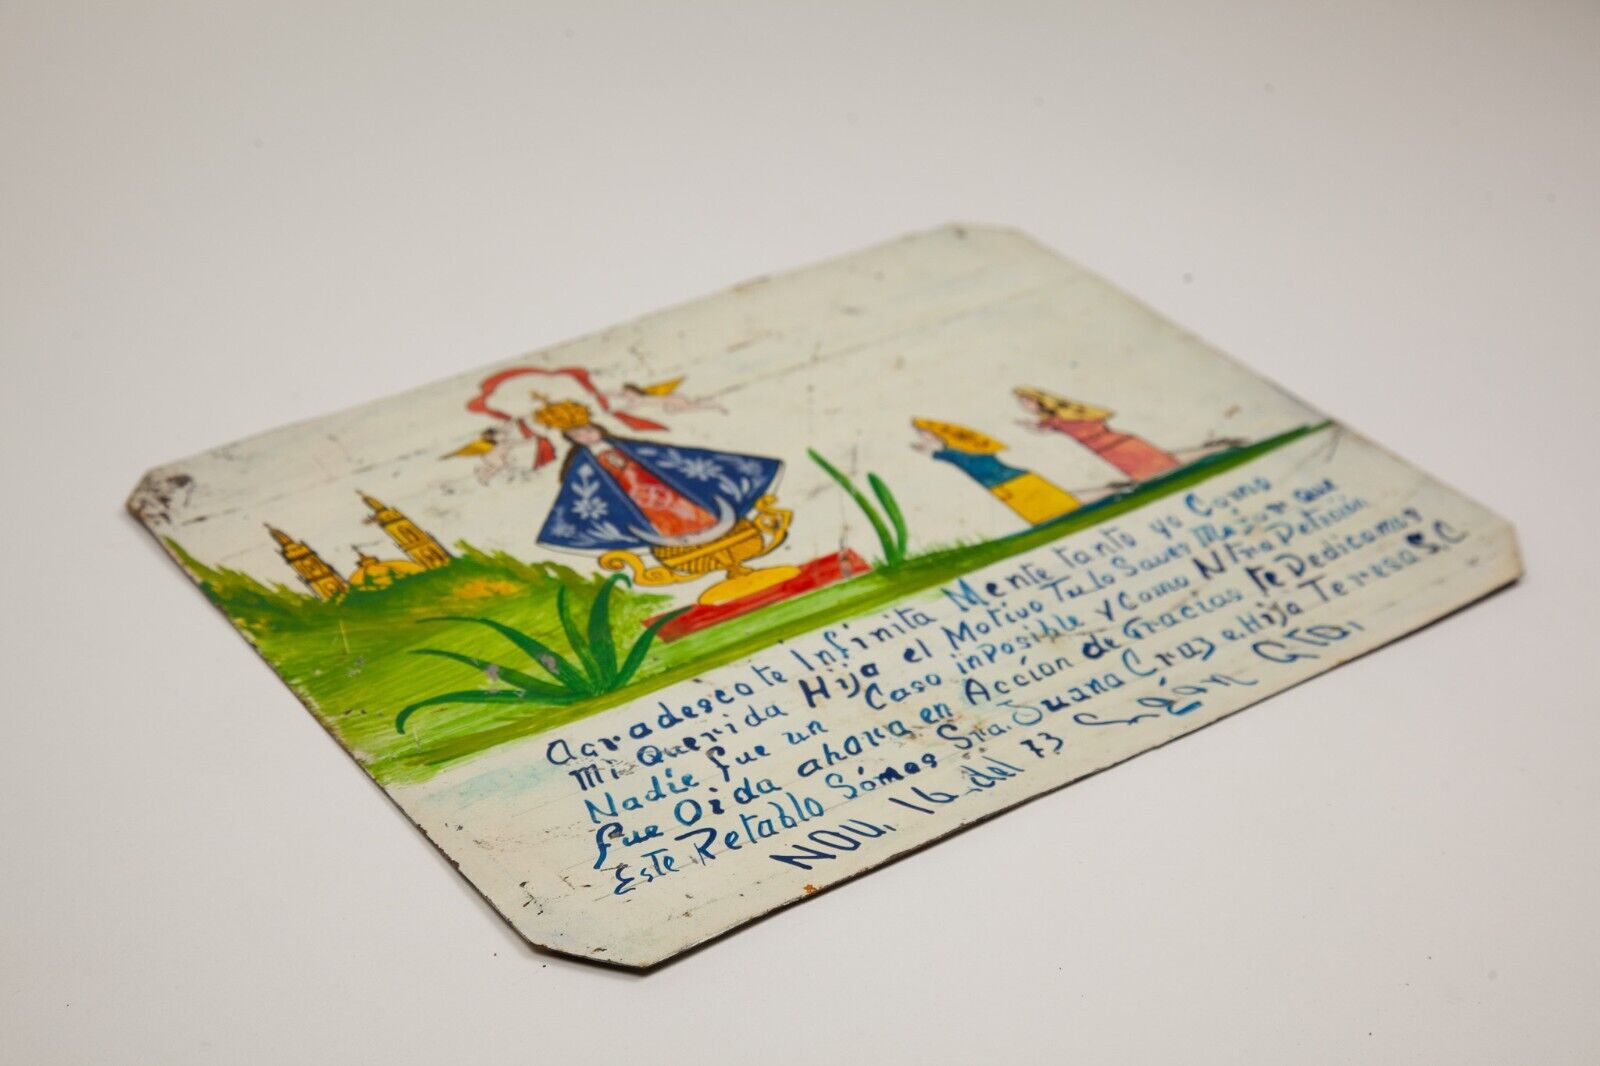 Agradescote Infinita Mente tanto yo Como
mi Querida Hija el Motivo Tu lo Saves Mejor que
Nadie fue un Caso inposible Y Como Ntra Petición
fue Oida ahora en Acción de Gracias te Dedicamos
Este Retablo Sómos Sra. Juana Cruz e Hija Teresa S.C
NOV. 16 del 73 León GTO,